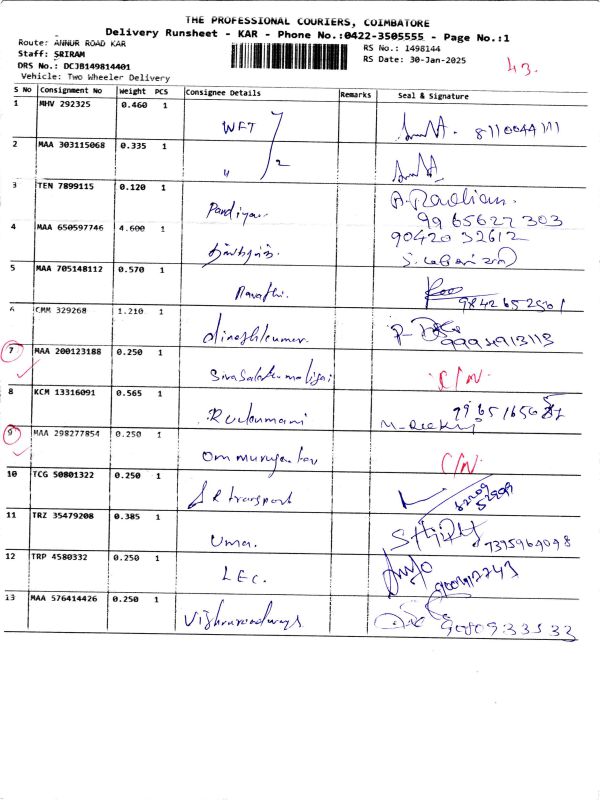 THE PROFESSIONAL COURIERS, COIMBATORE
Delivery Runsheet - KAR - Phone No.:0422-3505555 - Page No.:1
Route: ANNUR ROAD KAR RS No.: 1498144
Staff: SRIRAM RS Date: 30-Jan-2025 43.
DRS No.: DCJB1498144​01
Vehicle: Two Wheeler Delivery
S No Consignment No Weight PCS Consignee Details Remarks Seal & Signature
1 MHV 292325 0.460 1 WFT
2 MAA 303115068 0.335 1 " 2
3 TEN 7899115 0.120 1 Pandiyan A. Pandian. 99 65627 303
4 MAA 650597746 4.600 1 90420 32612
5 MAA 705148112 0.570 1 98426 52501
6 CMM 329268 1.210 1 dineshkumar
7 MAA 200123188 0.250 1 C/N.
8 KCM 13316091 0.565 1 Rukumani
9 MAA 298277854 0.250 1 C/N.
10 TCG 50801322 0.250 1 S R transport
11 TRZ 35479208 0.385 1 Uma.
12 TRP 4580332 0.250 1 LEC.
13 MAA 576414426 0.250 1 Vishnuroadways